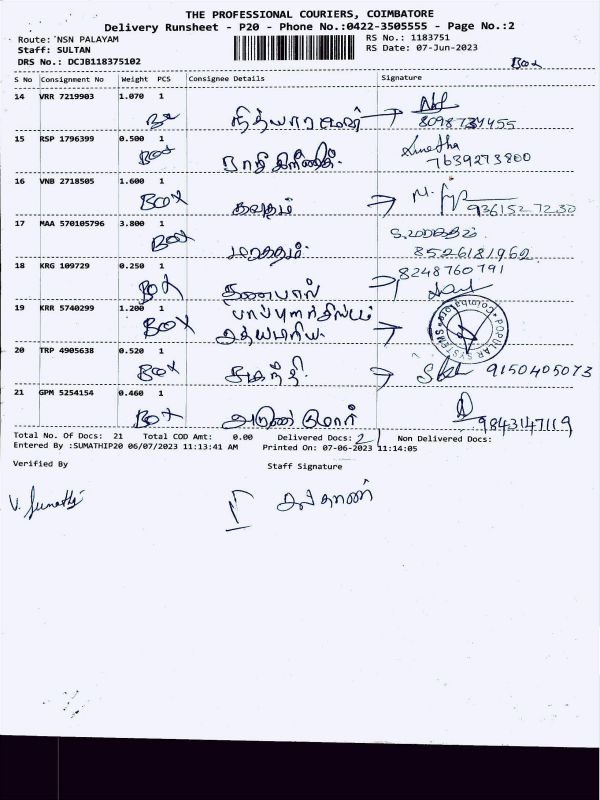 THE PROFESSIONAL COURIERS, COIMBATORE
Delivery Runsheet - P20 - Phone No.:0422-3505555 - Page No.:2
Route: NSN PALAYAM
RS No.: 1183751
Staff: SULTAN
RS Date: 07-Jun-2023
DRS No.: DCJB118375102
Box
S No Consignment No Weight PCS Consignee Details Signature
14 VRR 7219903 1.070 1
8098734455
15 RSP 1796399 0.500 1
Box
7639273800
16 VNB 2718505 1.600 1
Box
9361527230
17 MAA 570105796 3.800 1
Box
8526181962
18 KRG 109729 0.250 1
8248760791
Box தனபால்
19 KRR 5740299 1.200 1
Box
POPULAR SYSTEMS Coimbatore
20 TRP 4905638 0.520 1
Box 9150405073
21 GPM 5254154 0.460 1
Box அருண் குமார் 9843147119
Total No. Of Docs: 21 Total COD Amt: 0.00 Delivered Docs: 21 Non Delivered Docs:
Entered By :SUMATHIP20 06/07/2023 11:13:41 AM Printed On: 07-06-2023 11:14:05
Verified By Staff Signature
V. Sumathi